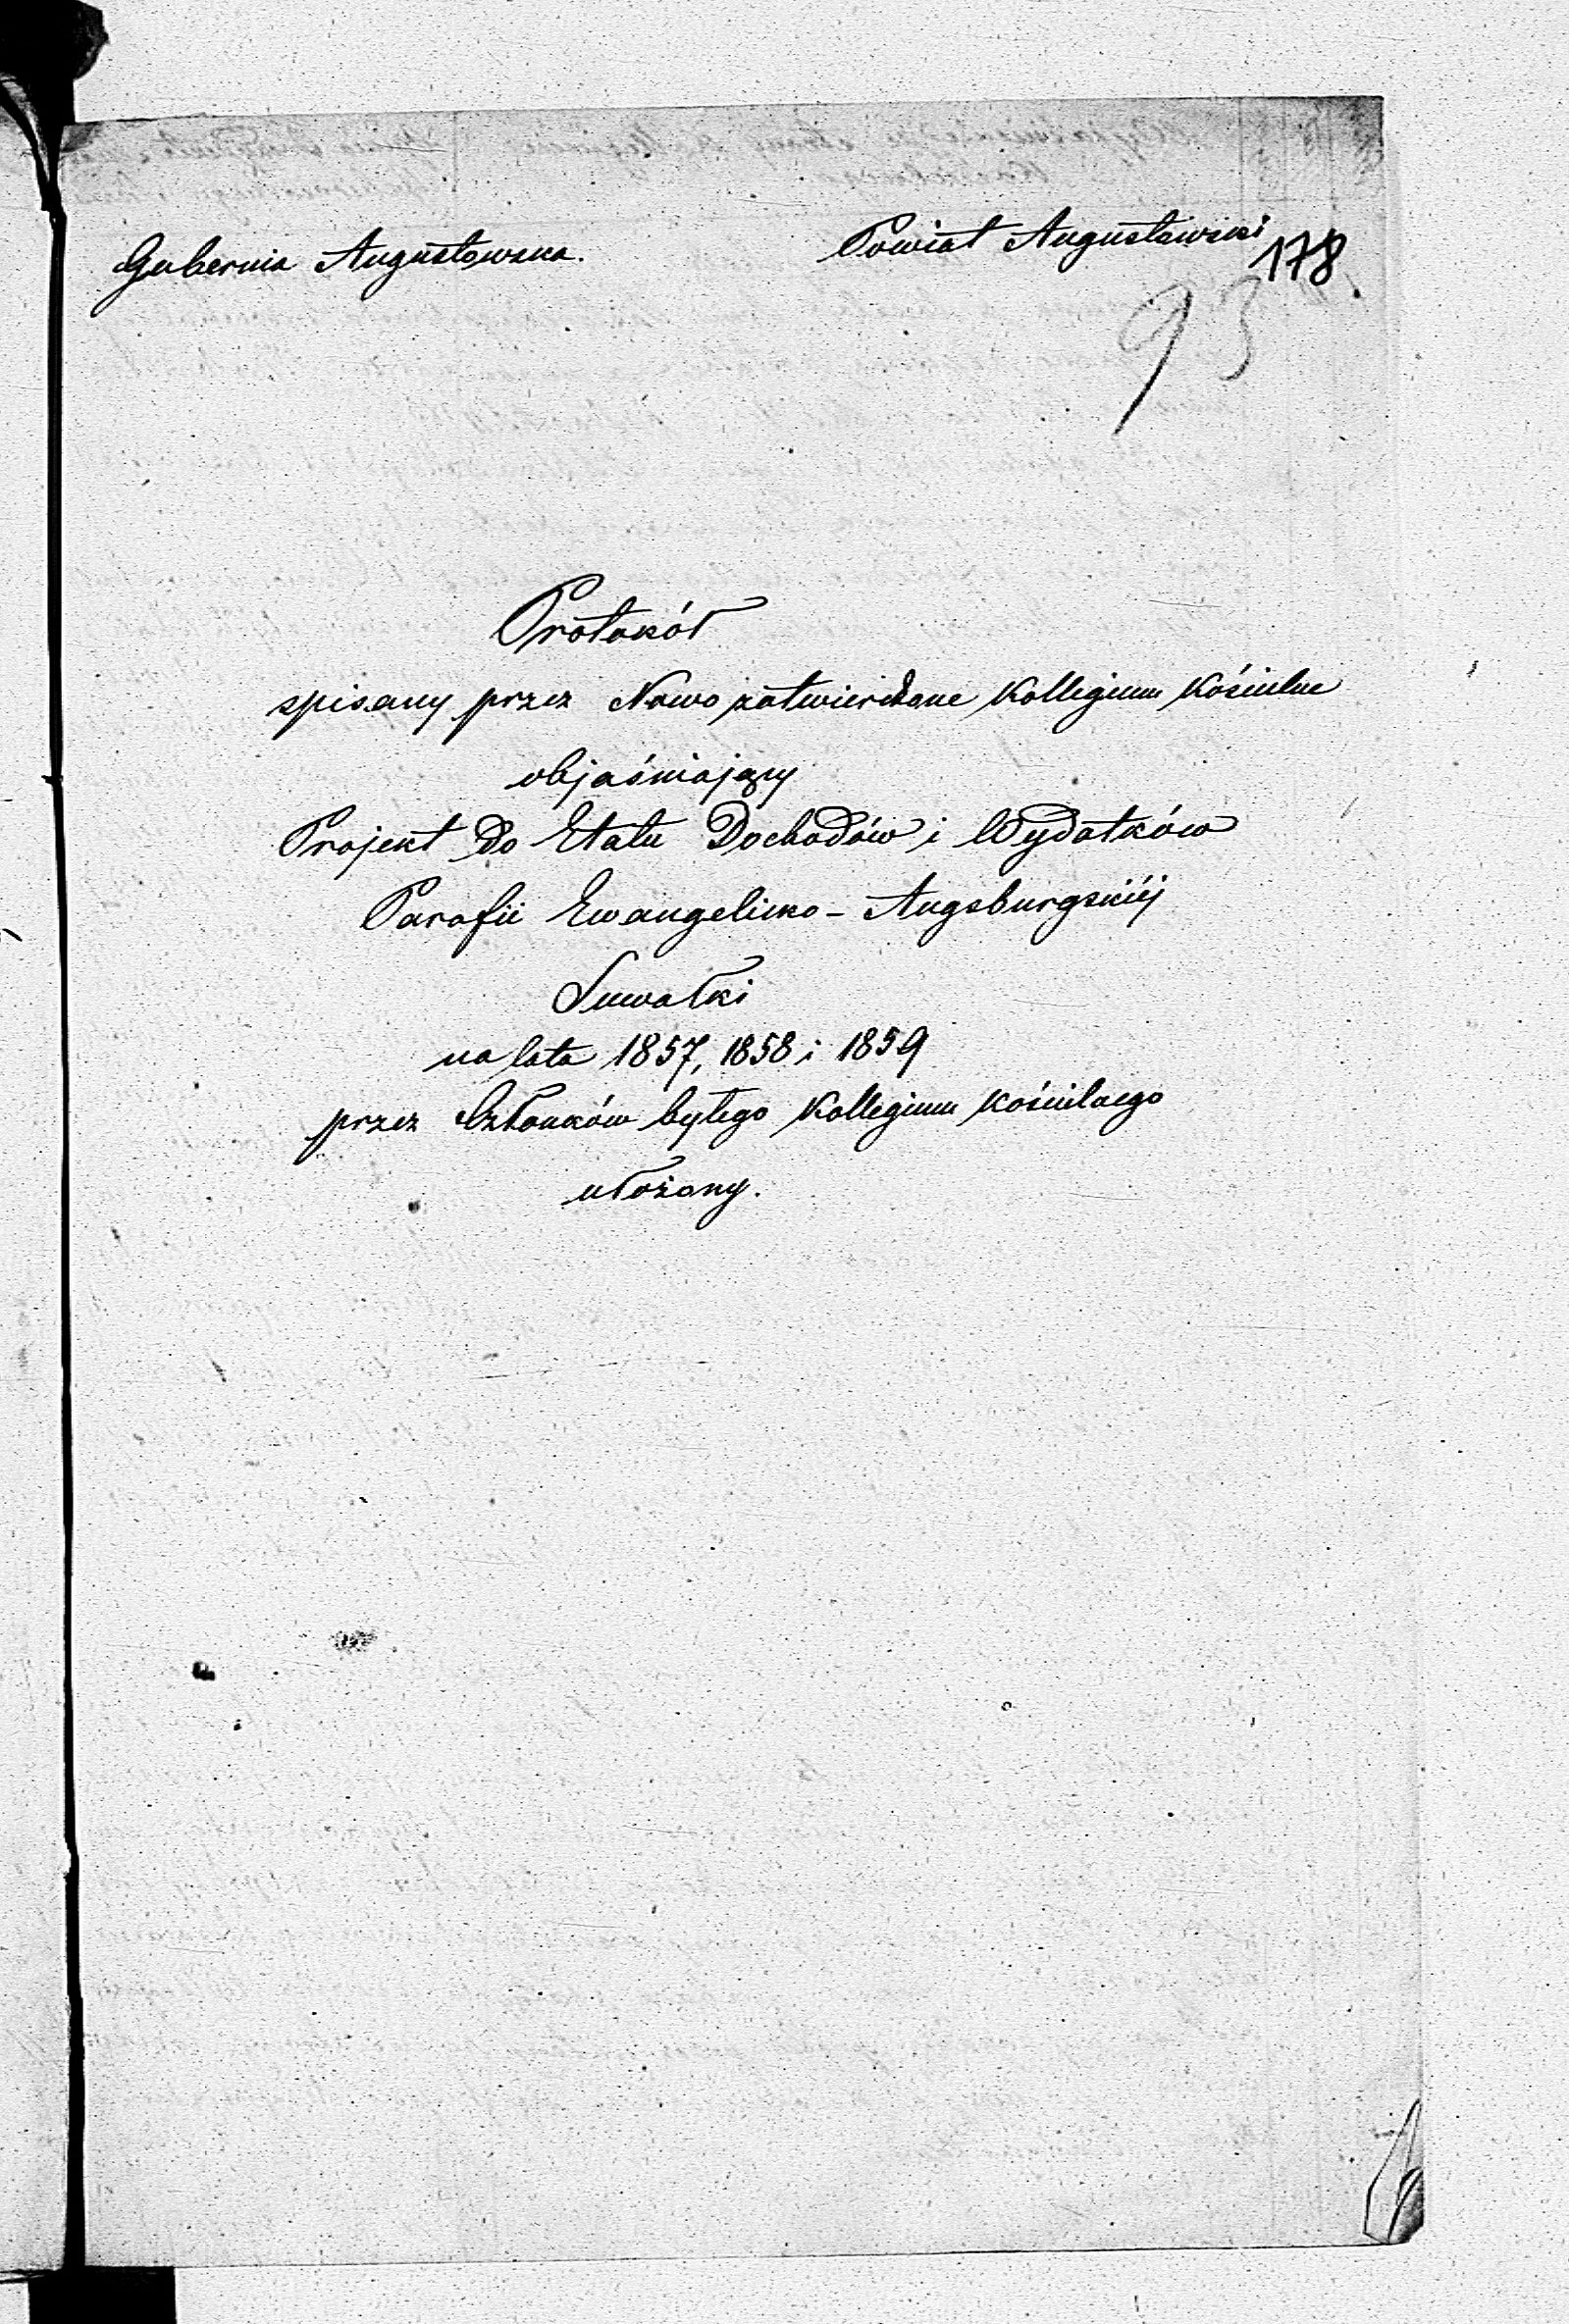 Gubernia Augustowska.
Powiat Augustowski
178
93
Protokół
spisany przez Nowo zatwierdzone Kollegium Kościelne
objaśniający
Projekt do Etatu Dochodów i Wydatków
Parafii Ewangelicko - Augsburgskiéj
Suwałki
na lata 1857, 1858 i 1859
przez Członków byłego Kollegium Kościelnego
ułożony.